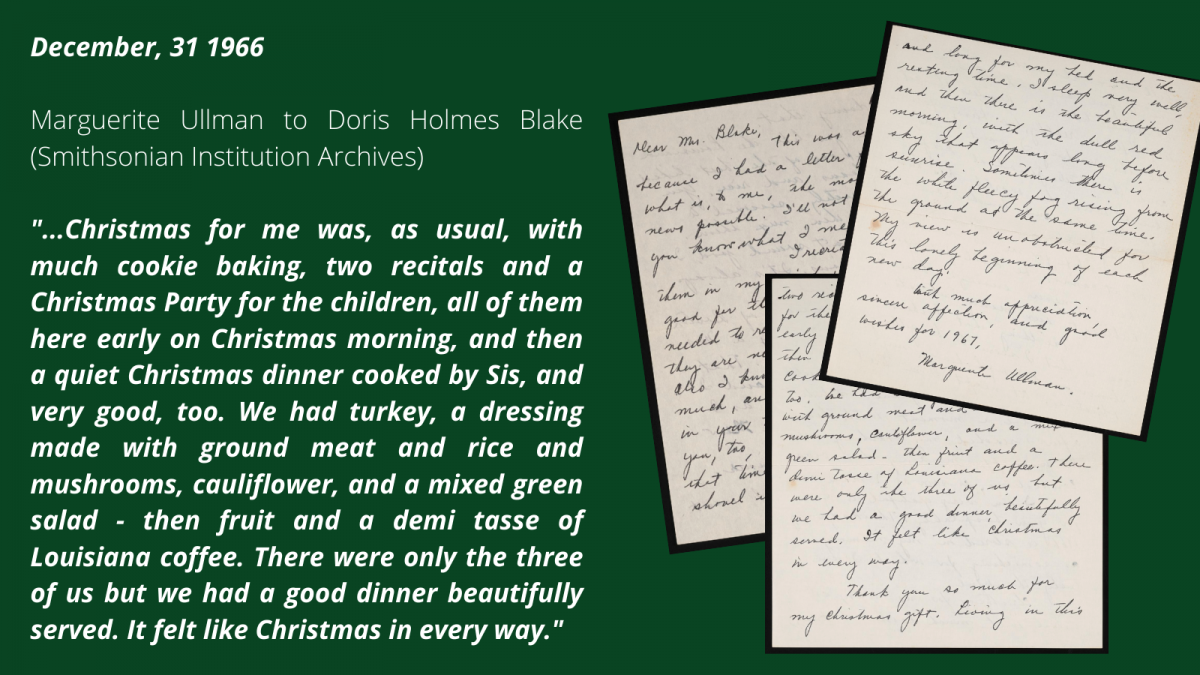 December, 31 1966
Marguerite Ullman to Doris Holmes Blake
(Smithsonian Institution Archives)
"...Christmas for me was, as usual, with
much cookie baking, two recitals and a
Christmas Party for the children, all of them
here early on Christmas morning, and then
a quiet Christmas dinner cooked by Sis, and
very good, too. We had turkey, a dressing
made with ground meat and rice and
mushrooms, cauliflower, and a mixed green
salad - then fruit and a demi tasse of
Louisiana coffee. There were only the three
of us but we had a good dinner beautifully
served. It felt like Christmas in every way."
Dear Mrs. Blake,
This was a
because I had a letter
what is, to me, the mo
news possible. I'll not
you know what I me
I recei
them in my
good for th
needed to re
they are ne
also I kn
much, an
in your
you, too,
that time
shovel
two re
for the
early
then
cook
too. We had
with ground meat and
mushrooms, cauliflower, and a mix
green salad - then fruit and a
demi tasse of Louisiana coffee. There
were only the three of us but
we had a good dinner beautifully
served. It felt like Christmas
in every way.
Thank you so much for
my Christmas gift. Living in this
and long for my bed and the
resting time. I sleep very well,
and then there is the beautiful
morning, with the dull red
sky that appears long before
sunrise. Sometimes there is
the white fleecy fog rising from
the ground at the same time.
My view is unobstructed for
this lonely beginning of each
new day.
With much appreciation,
sincere affection, and good
wishes for 1967,
Marguerite Ullman.